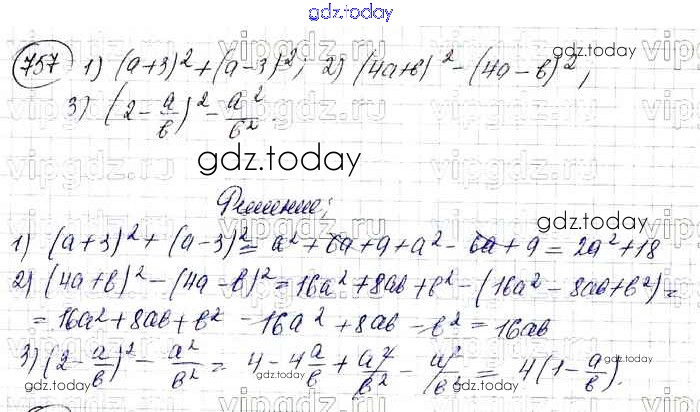 gdz.today
757 1) (a+3)²+(a-3)²; 2) (4a+b)²-(4a-b)²,
3) (2-a/b)²-a²/b².
gdz.today
gdz.today
Решение:
gdz.today
1) (a+3)²+(a-3)²=a²+6a+9+a²-6a+9=2a²+18
2) (4a+b)²-(4a-b)²=16a²+8ab+b²-(16a²-8ab+b²)=
=16a²+8ab+b²-16a²+8ab-b²=16ab
3) (2-a/b)²-a²/b²=4-4a/b+a²/b²-a²/b²=4(1-a/b).
gdz.today
gdz.today
gdz.today
gdz.today